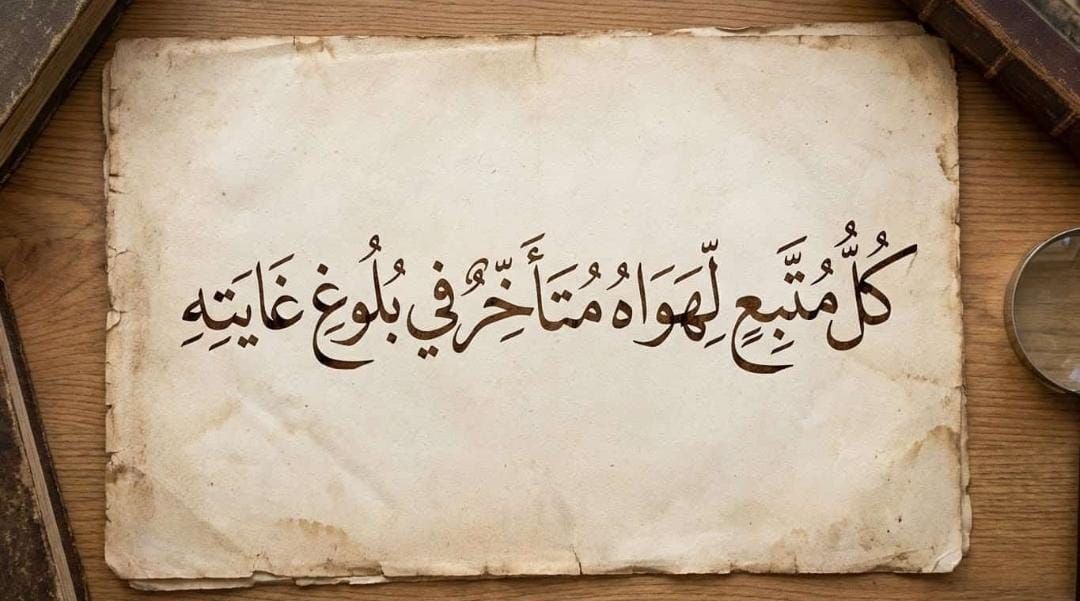 كُلُّ مُتَّبِعٍ لِّهَوَاهُ مُتَأَخِّرٌ فِي بُلُوغِ غَايَتِهِ